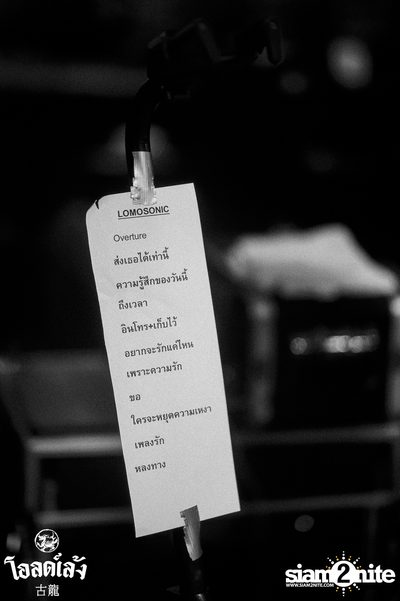 LOMOSONIC
Overture
ส่งเธอได้เท่านี้
ความรู้สึกของวันนี้
ถึงเวลา
อินโทร+เก็บไว้
อยากจะรักแค่ไหน
เพราะความรัก
ขอ
ใครจะหยุดความเหงา
เพลงรัก
หลงทาง
โอลด์เล้ง
古龍
siam2nite
WWW.SIAM2NITE.COM